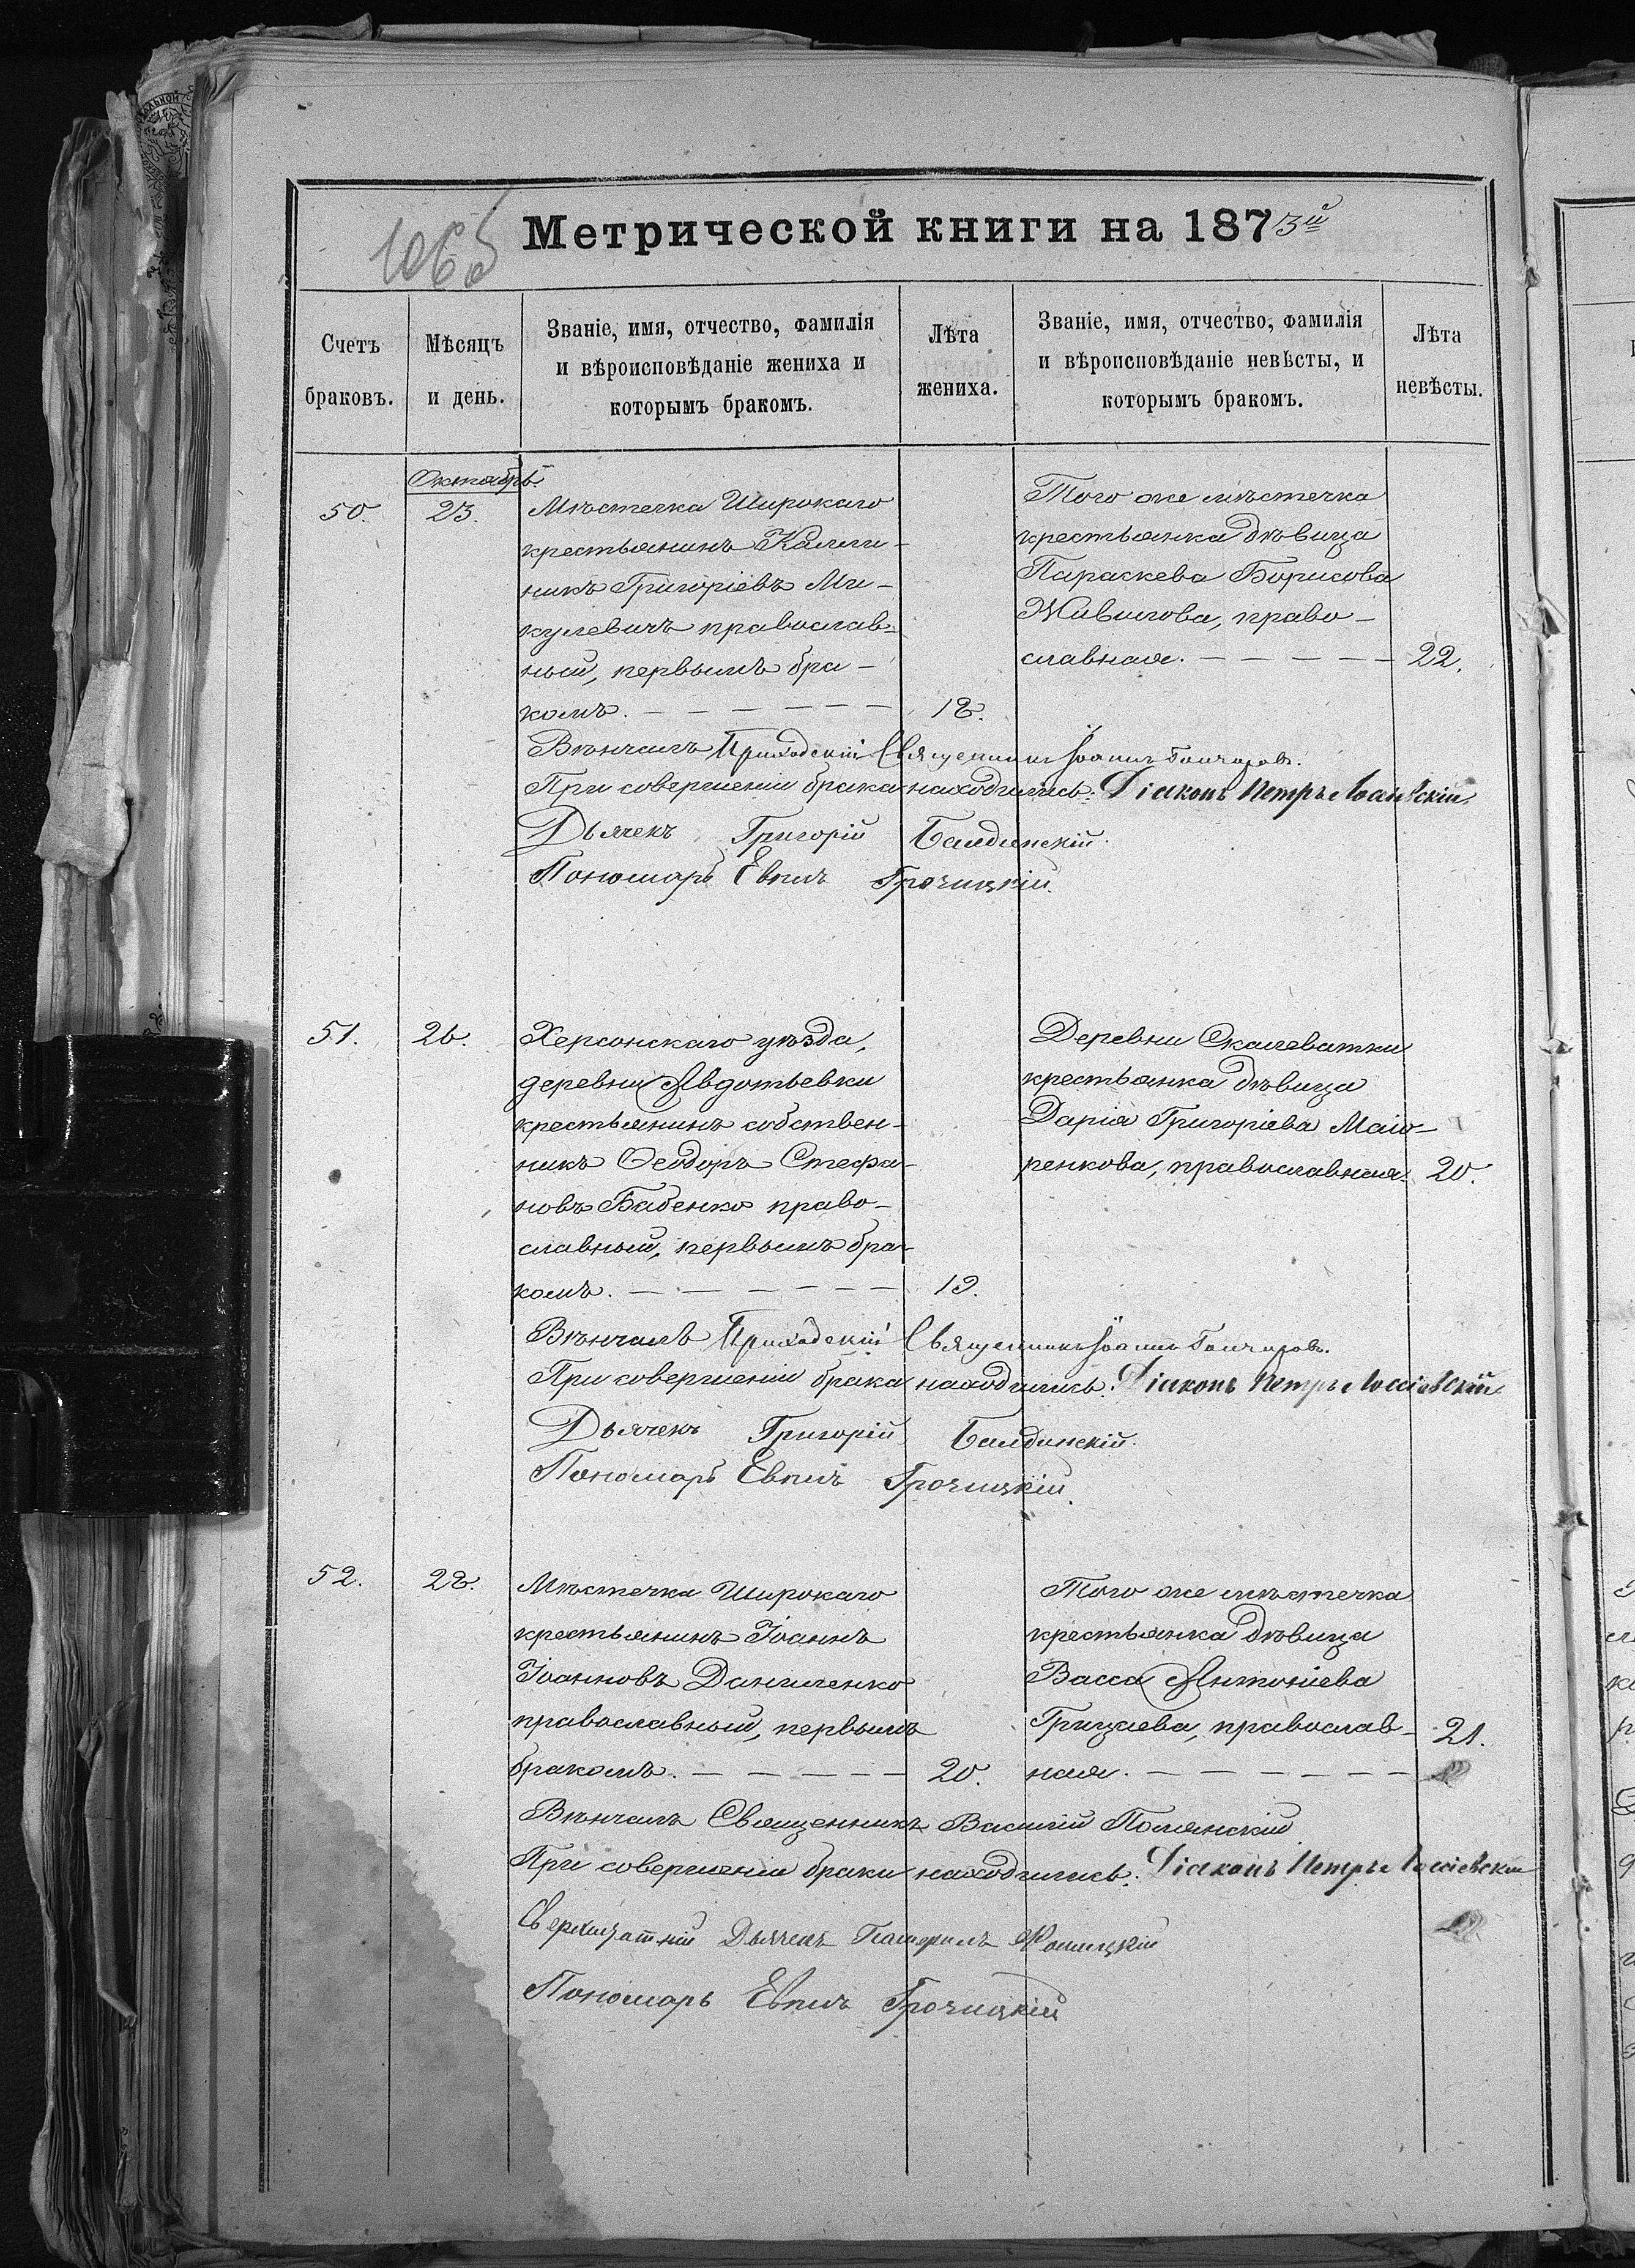 Метрической книги на 1873й
1065
Счетъ браковъ.
Мѣсяцъ и день.
Званіе, имя, отчество, фамилія
и вѣроисповѣданіе жениха и
которымъ бракомъ.
Лѣта жениха.
Званіе, имя, отчество, фамилія
и вѣроисповѣданіе невѣсты, и
которымъ бракомъ.
Лѣта невѣсты.
Октябрь.
50.
23.
Мѣстечка Широкаго
крестьянинъ Калли-
никъ Григоріевъ Ми-
кулевичъ православ-
ный, первымъ бра-
комъ. — — — — — —
18.
Того же мѣстечка
крестьянка дѣвица
Параскева Борисова
Живилова, право-
славная. — — — — —
22.
Вѣнчалъ Приходскій Священникъ Іоаннъ Гончаровъ.
При совершеніи брака находились: Діаконъ Петръ
Дьячекъ Григорій Балдинскій.
Пономарь
51.
26.
Херсонскаго уѣзда,
деревни Авдотьевки
крестьянинъ собствен-
никъ Ѳеодоръ Стефа-
новъ Бабенко право-
славный, первымъ бра-
комъ. — — — — — —
19.
Деревни Скалеватки
крестьянка дѣвица
Дарія Григоріева Маіо-
ренкова, православная.
20.
Вѣнчалъ Приходскій Священникъ Іоаннъ Гончаровъ.
При совершеніи брака находились: Діаконъ Петръ
Дьячекъ Григорій Балдинскій.
Пономарь
52.
28.
Мѣстечка Широкаго
крестьянинъ Іоаннъ
Іоанновъ Даниленко
православный, первымъ
бракомъ. — — — — —
20.
Того же мѣстечка
крестьянка дѣвица
Васса Антоніева
Грицаева, православ-
ная. — — — — — —
21.
Вѣнчалъ Священникъ Василій Полянскій
При совершеніи брака находились: Діаконъ Петръ
Сверхштатній Дьячекъ
Пономарь